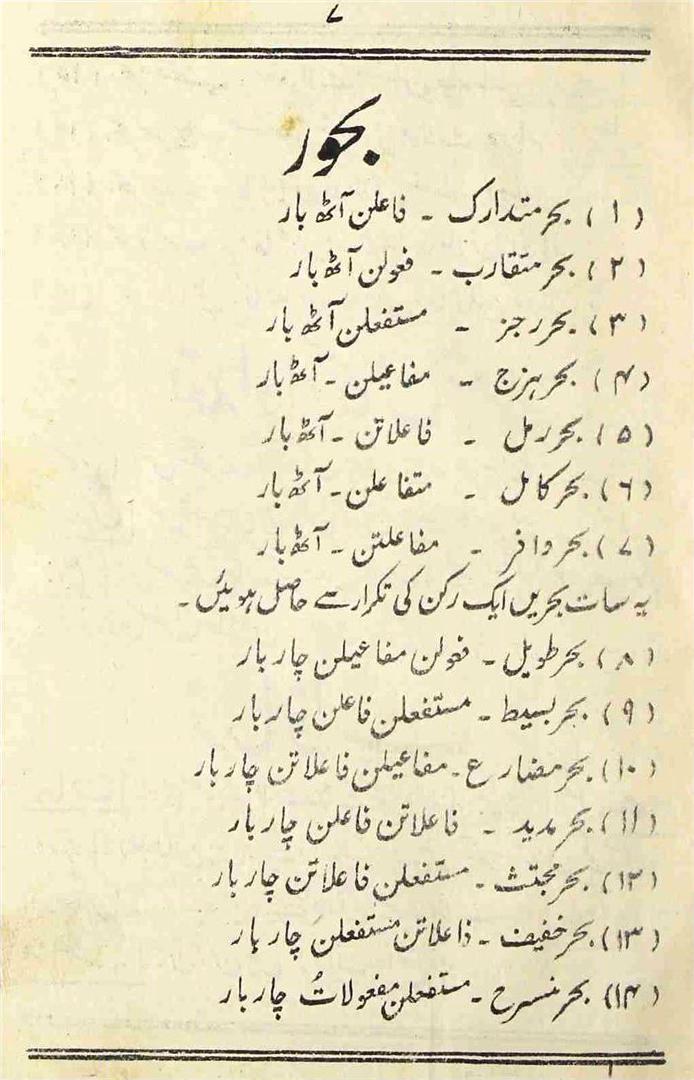 ۷
بحور
(۱) بحر متدارک ۔ فاعلن آٹھ بار
(۲) بحر متقارب ۔ فعولن آٹھ بار
(۳) بحر رجز ۔ مستفعلن آٹھ بار
(۴) بحر ہزج ۔ مفاعیلن ۔ آٹھ بار
(۵) بحر رمل ۔ فاعلاتن ۔ آٹھ بار
(۶) بحر کامل ۔ متفاعلن ۔ آٹھ بار
(۷) بحر وافر ۔ مفاعلتن ۔ آٹھ بار
یہ سات بحریں ایک رکن کی تکرار سے حاصل ہوئیں ۔
(۸) بحر طویل ۔ فعولن مفاعیلن چار بار
(۹) بحر بسیط ۔ مستفعلن فاعلن چار بار
(۱۰) بحر مضارع ۔ مفاعیلن فاعلاتن چار بار
(۱۱) بحر مدید ۔ فاعلاتن فاعلن چار بار
(۱۲) بحر مجتث ۔ مستفعلن فاعلاتن چار بار
(۱۳) بحر خفیف ۔ فاعلاتن مستفعلن چار بار
(۱۴) بحر منسرح ۔ مستفعلن مفعولاتُ چار بار